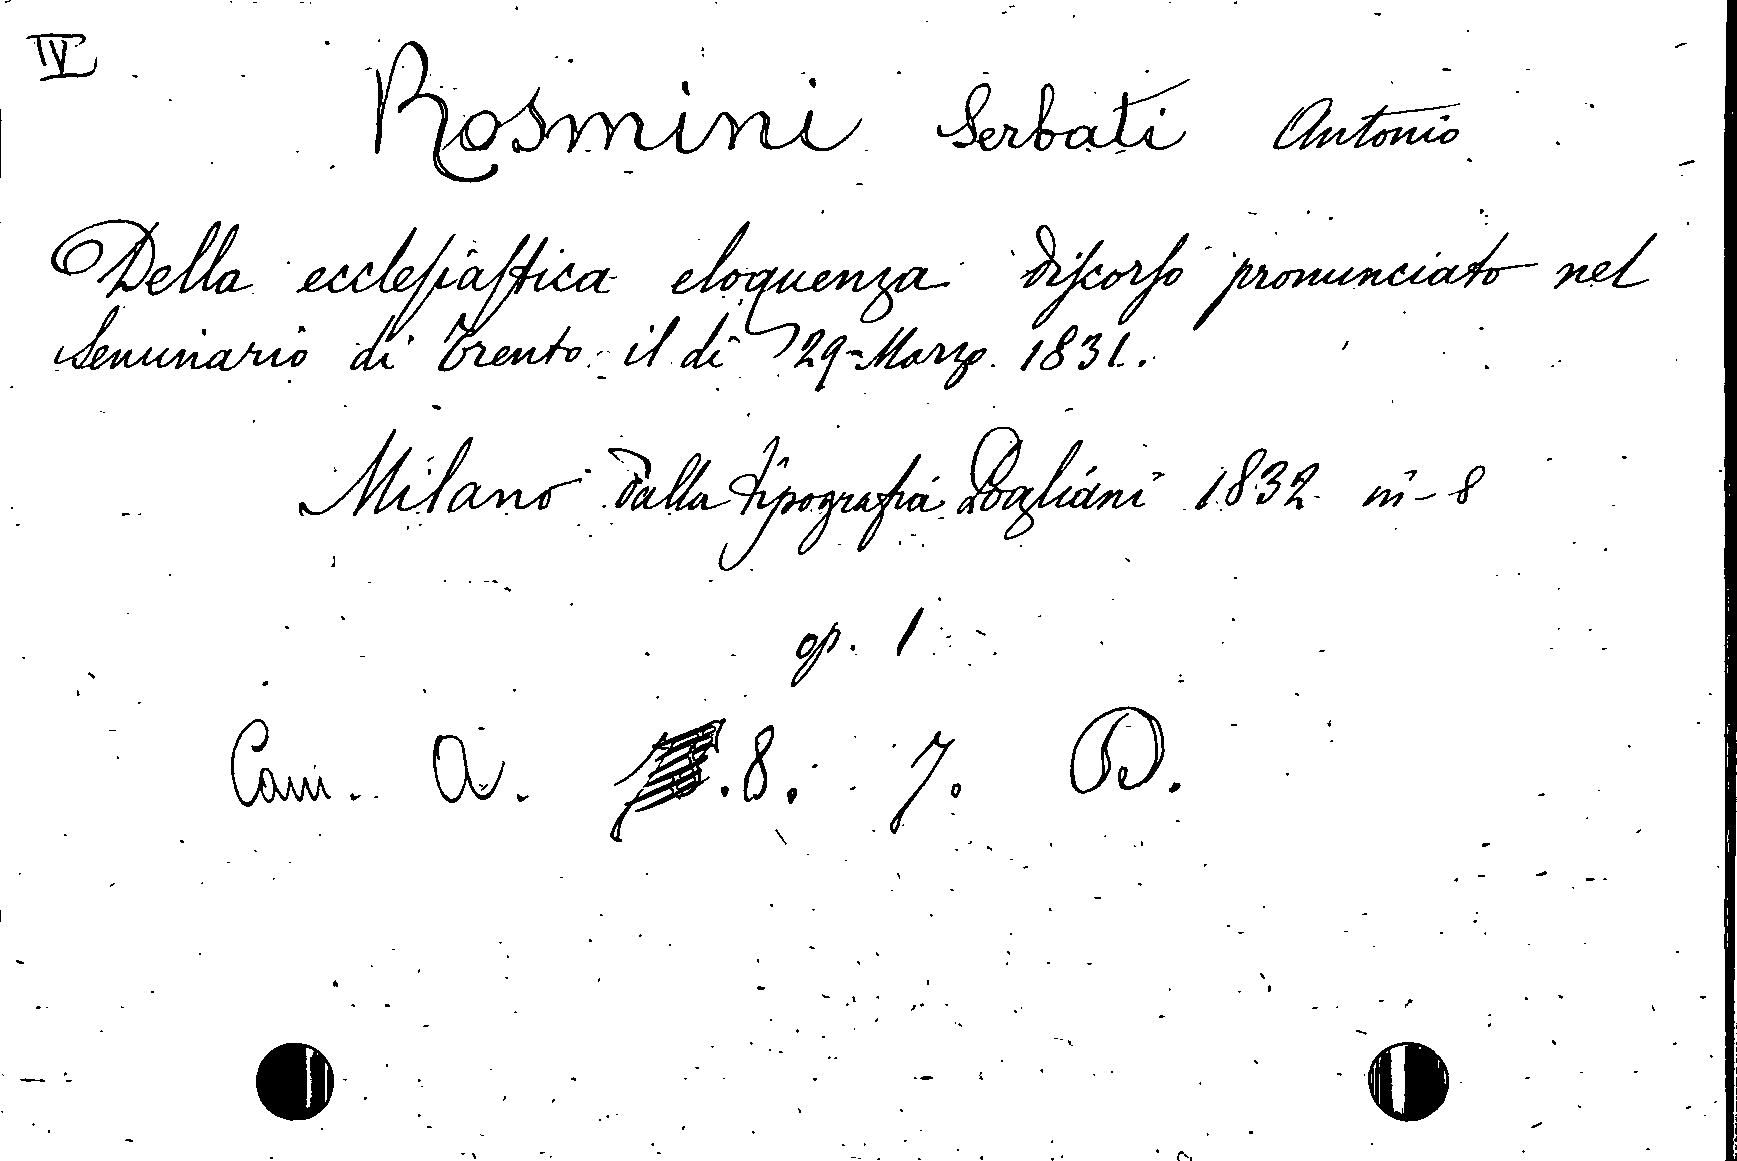 IV
Rosmini Serbati Antonio
Della ecclesiastica eloquenza discorso pronunciato nel
Seminario di Trento il di 29 Marzo 1831.
Milano dalla Tipografia Pogliani 1832 in-8
op. 1
Cam. A. .8. 7.